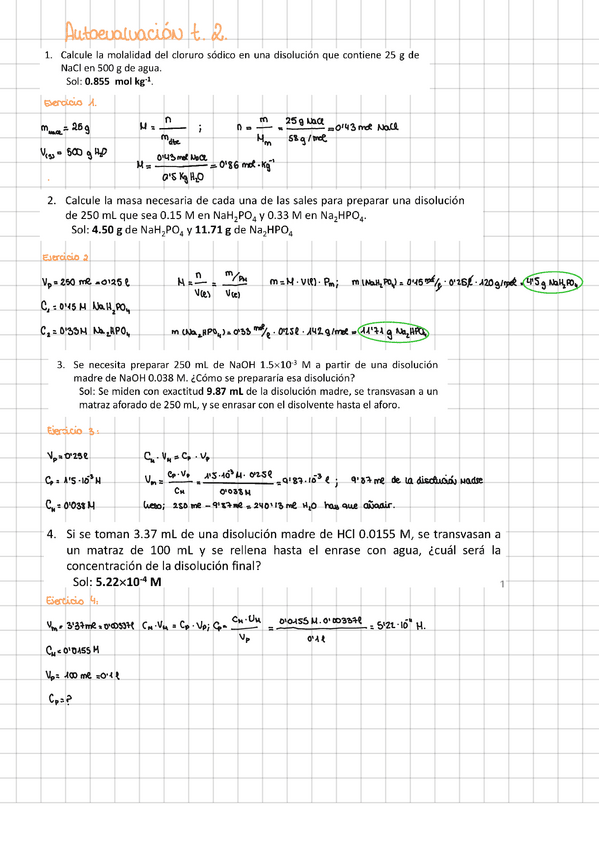 Autoevaluación t. 2.
1. Calcule la molalidad del cloruro sódico en una disolución que contiene 25 g de
NaCl en 500 g de agua.
Sol: 0.855 mol kg⁻¹.
Ejercicio 1.
m = 25g M = n/m ; n = m/Mm = 25g NaCl/58g/mol = 0'43 mol NaCl
V(s) = 500 g H₂O M = 0'43 mol NaCl/0'5 Kg H₂O = 0'86 mol·Kg⁻¹
2. Calcule la masa necesaria de cada una de las sales para preparar una disolución
de 250 mL que sea 0.15 M en NaH₂PO₄ y 0.33 M en Na₂HPO₄.
Sol: 4.50 g de NaH₂PO₄ y 11.71 g de Na₂HPO₄
Ejercicio 2
Vp = 250 ml = 0'25 l M = n/V(l) = m/PM/V(l) m = M · V(l) · Pm; m (NaH₂PO₄) = 0'15 mol/l · 0'25 l · 120 g/mol = 4'5 g NaH₂PO₄
C₁ = 0'15 M NaH₂PO₄
C₂ = 0'33 M Na₂HPO₄ m (Na₂HPO₄) = 0'33 mol/l · 0'25 l · 142 g/mol = 11'71 g Na₂HPO₄
3. Se necesita preparar 250 mL de NaOH 1.5×10⁻³ M a partir de una disolución
madre de NaOH 0.038 M. ¿Cómo se prepararía esa disolución?
Sol: Se miden con exactitud 9.87 mL de la disolución madre, se transvasan a un
matraz aforado de 250 mL, y se enrasar con el disolvente hasta el aforo.
Ejercicio 3:
Vp = 0'25 l CM · VM = Cp · Vp
Cp = 1'5·10⁻³ M Vm = Cp · Vp/CM = 1'5·10⁻³ M · 0'25 l/0'038 M = 9'87·10⁻³ l ; 9'87 ml de la disolución madre
CM = 0'038 M luego; 250 ml − 9'87 ml = 240'13 ml H₂O hay que añadir.
4. Si se toman 3.37 mL de una disolución madre de HCl 0.0155 M, se transvasan a
un matraz de 100 mL y se rellena hasta el enrase con agua, ¿cuál será la
concentración de la disolución final?
Sol: 5.22×10⁻⁴ M
1
Ejercicio 4:
Vm = 3'37 ml = 0'00337 l CM · VM = Cp · Vp; Cp = CM · VM/Vp = 0'0155 M · 0'00337 l/0'1 l = 5'22·10⁻⁴ M.
CM = 0'0155 M
Vp = 100 ml = 0'1 l
Cp = ?